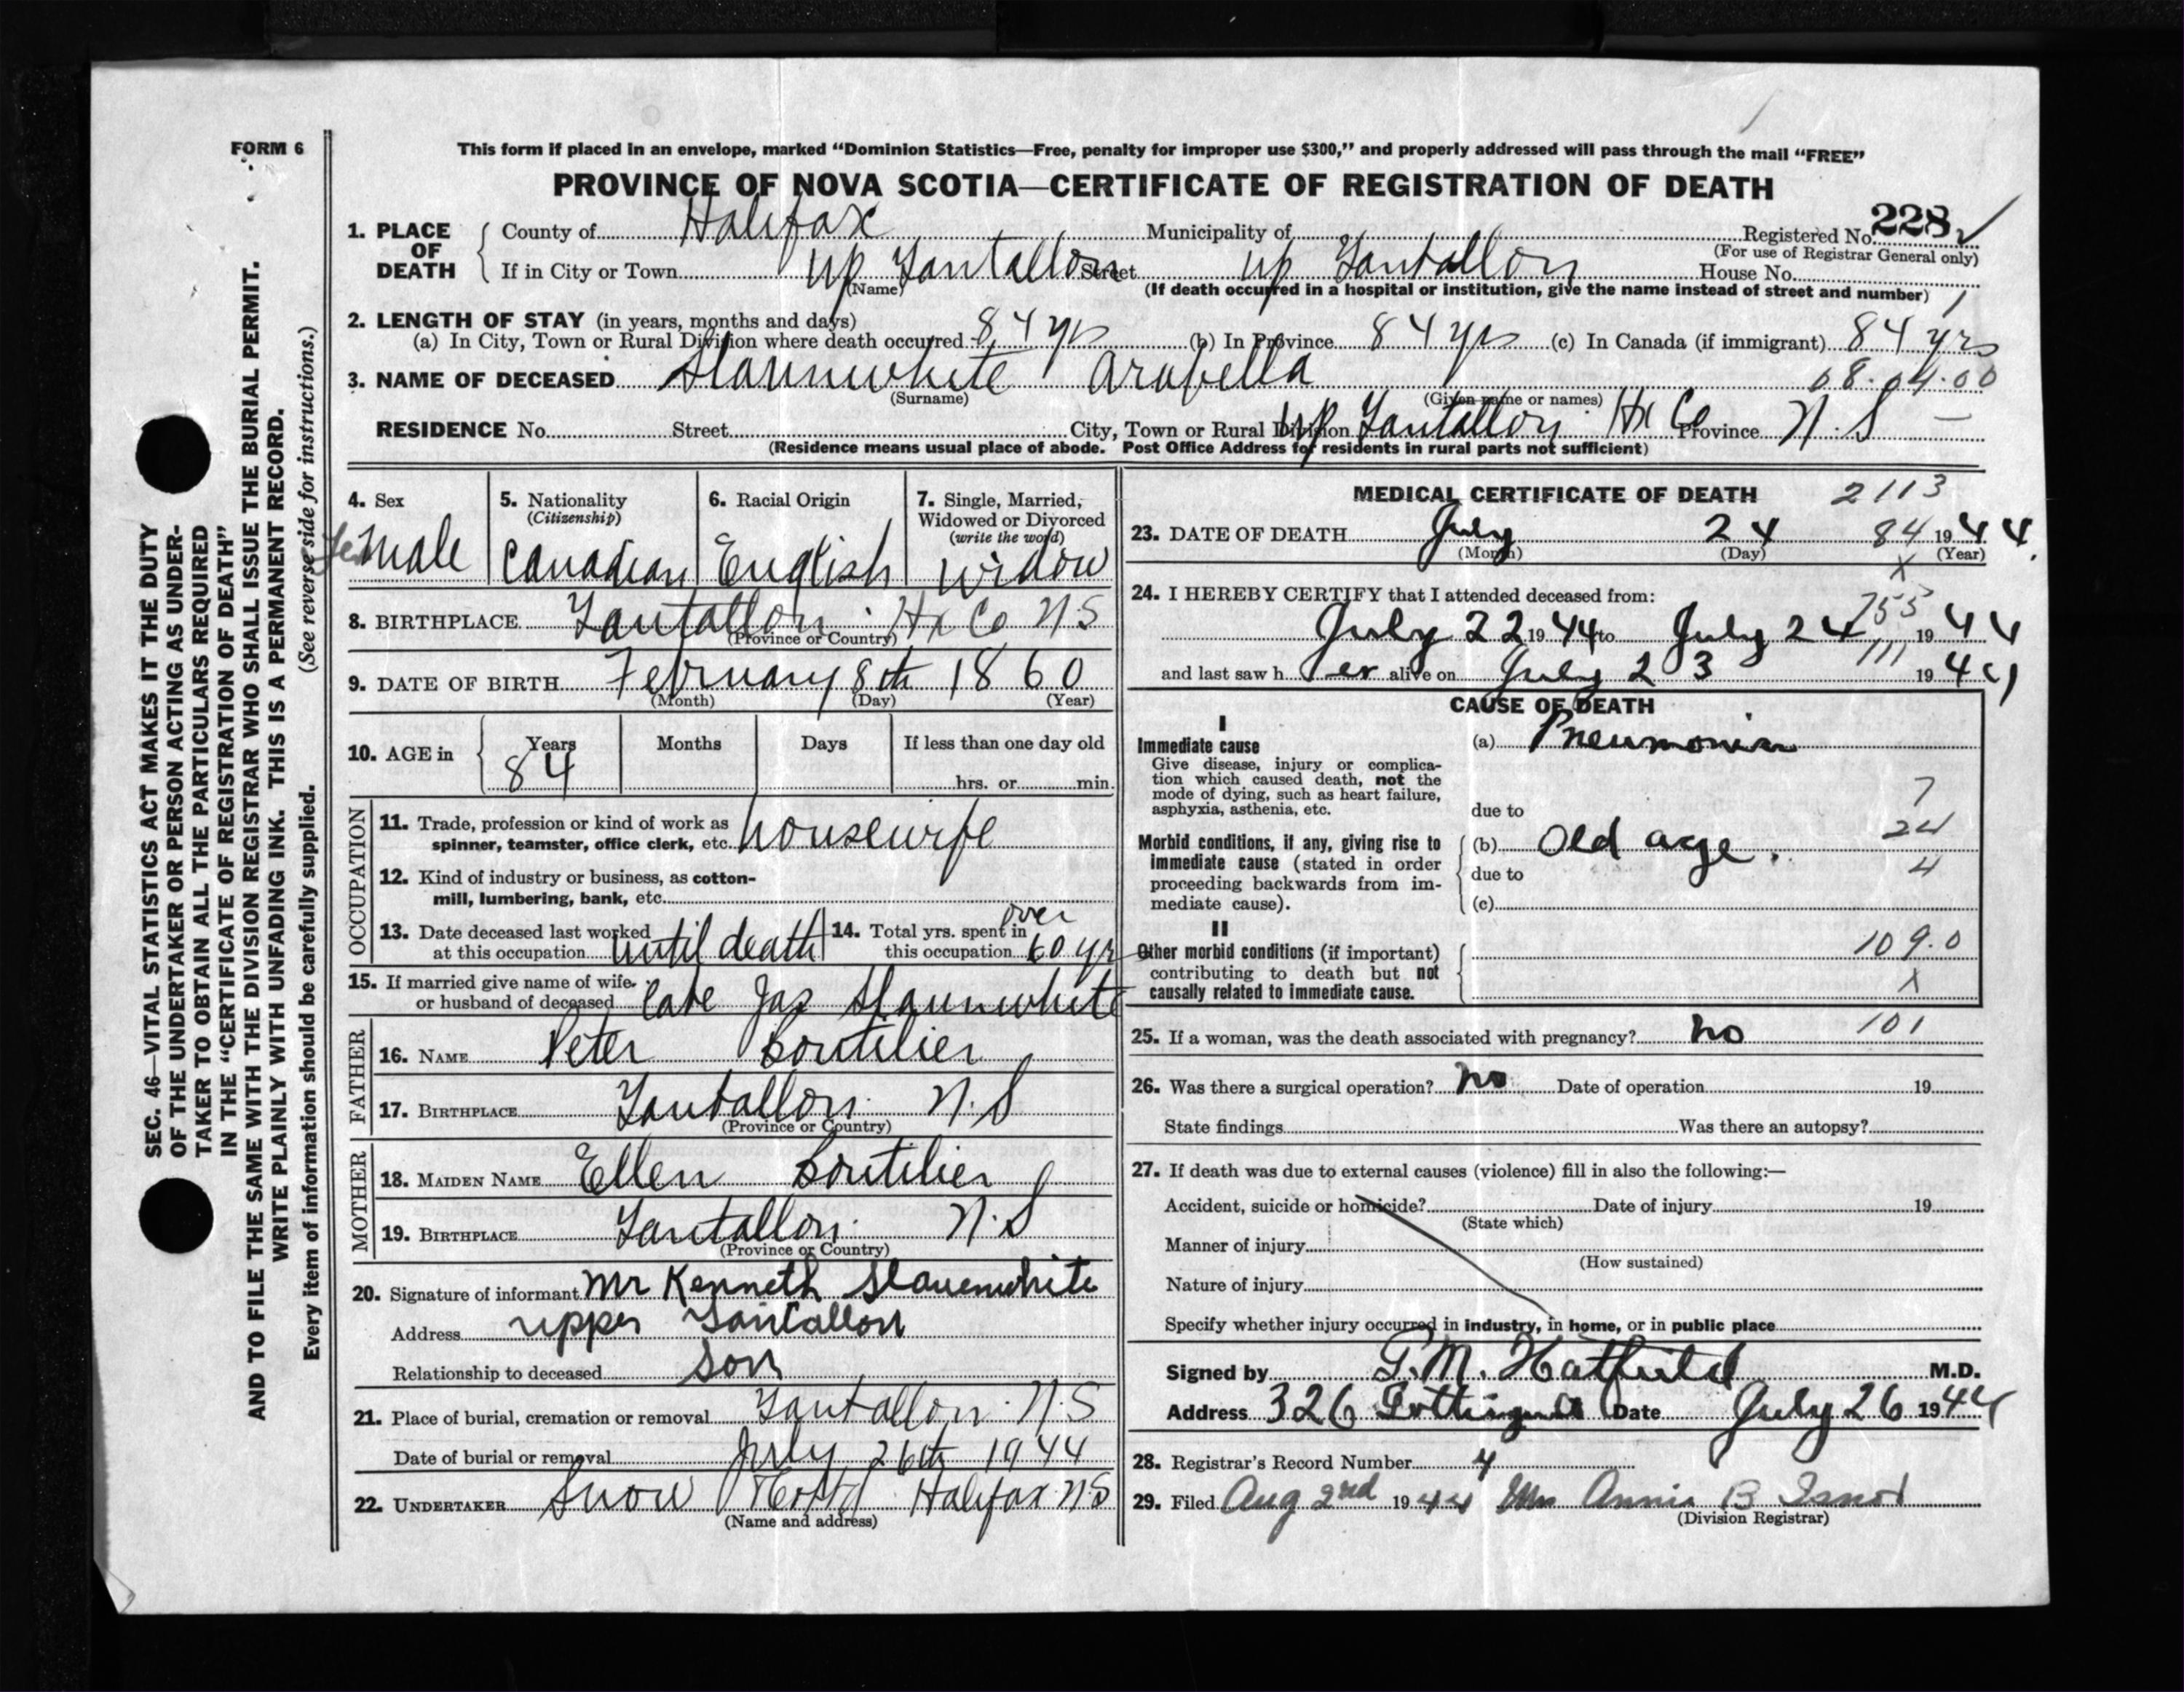 FORM 6
This form if placed in an envelope, marked “Dominion Statistics—Free, penalty for improper use $300,” and properly addressed will pass through the mail “FREE”
PROVINCE OF NOVA SCOTIA—CERTIFICATE OF REGISTRATION OF DEATH
1. PLACE OF DEATH
County of Halifax Municipality of Registered No. 228
(For use of Registrar General only)
If in City or Town Up Tantallon Street Up Tantallon House No.
(Name) (If death occurred in a hospital or institution, give the name instead of street and number) 1
2. LENGTH OF STAY (in years, months and days)
(a) In City, Town or Rural Division where death occurred 84 yrs (b) In Province 84 yrs (c) In Canada (if immigrant) 84 yrs
3. NAME OF DECEASED Slaunwhite Arabella 68.04.00
(Surname) (Given name or names)
RESIDENCE No. Street City, Town or Rural Division Up Tantallon Hx Co Province N.S —
(Residence means usual place of abode. Post Office Address for residents in rural parts not sufficient)
4. Sex
Female
5. Nationality
(Citizenship)
Canadian
6. Racial Origin
English
7. Single, Married, Widowed or Divorced
(write the word)
Widow
8. BIRTHPLACE Tantallon Hx Co N S
(Province or Country)
9. DATE OF BIRTH February 8th 1860
(Month) (Day) (Year)
10. AGE in Years Months Days If less than one day old
84 hrs. or min.
OCCUPATION
11. Trade, profession or kind of work as
spinner, teamster, office clerk, etc. housewife
12. Kind of industry or business, as cotton-
mill, lumbering, bank, etc.
13. Date deceased last worked
at this occupation until death
14. Total yrs. spent in over
this occupation 60 yr
15. If married give name of wife
or husband of deceased late Jas Slaunwhite
FATHER
16. NAME Peter Boutilier
17. BIRTHPLACE Tantallon N.S
(Province or Country)
MOTHER
18. MAIDEN NAME Ellen Boutilier
19. BIRTHPLACE Tantallon N.S
(Province or Country)
20. Signature of informant Mr Kenneth Slauenwhite
Address upper Tantallon
Relationship to deceased Son
21. Place of burial, cremation or removal Tantallon N.S
Date of burial or removal July 26th 1944
22. UNDERTAKER Snow Halifax NS
(Name and address)
MEDICAL CERTIFICATE OF DEATH 2113
23. DATE OF DEATH July 24 84 1944.
(Month) (Day) X (Year)
24. I HEREBY CERTIFY that I attended deceased from: 755
July 22 1944 to July 24 1944
111
and last saw her alive on July 23 1944
CAUSE OF DEATH
I
Immediate cause
Give disease, injury or complica-
tion which caused death, not the
mode of dying, such as heart failure,
asphyxia, asthenia, etc.
(a) Pneumonia
7
due to
Morbid conditions, if any, giving rise to
immediate cause (stated in order
proceeding backwards from im-
mediate cause).
24
(b) Old age.
due to 4
(c)
II
Other morbid conditions (if important)
contributing to death but not
causally related to immediate cause.
109.0
X
25. If a woman, was the death associated with pregnancy? no 101
26. Was there a surgical operation? no Date of operation 19
State findings Was there an autopsy?
27. If death was due to external causes (violence) fill in also the following:—
Accident, suicide or homicide? Date of injury 19
(State which)
Manner of injury
(How sustained)
Nature of injury
Specify whether injury occurred in industry, in home, or in public place
Signed by G.M. Hatfield M.D.
Address 326 Date July 26 1944
28. Registrar's Record Number 4
29. Filed Aug 2nd 1944 Mrs Annie B Isnor
(Division Registrar)
SEC. 46—VITAL STATISTICS ACT MAKES IT THE DUTY
OF THE UNDERTAKER OR PERSON ACTING AS UNDER-
TAKER TO OBTAIN ALL THE PARTICULARS REQUIRED
IN THE “CERTIFICATE OF REGISTRATION OF DEATH”
AND TO FILE THE SAME WITH THE DIVISION REGISTRAR WHO SHALL ISSUE THE BURIAL PERMIT.
WRITE PLAINLY WITH UNFADING INK. THIS IS A PERMANENT RECORD.
Every item of information should be carefully supplied. (See reverse side for instructions.)